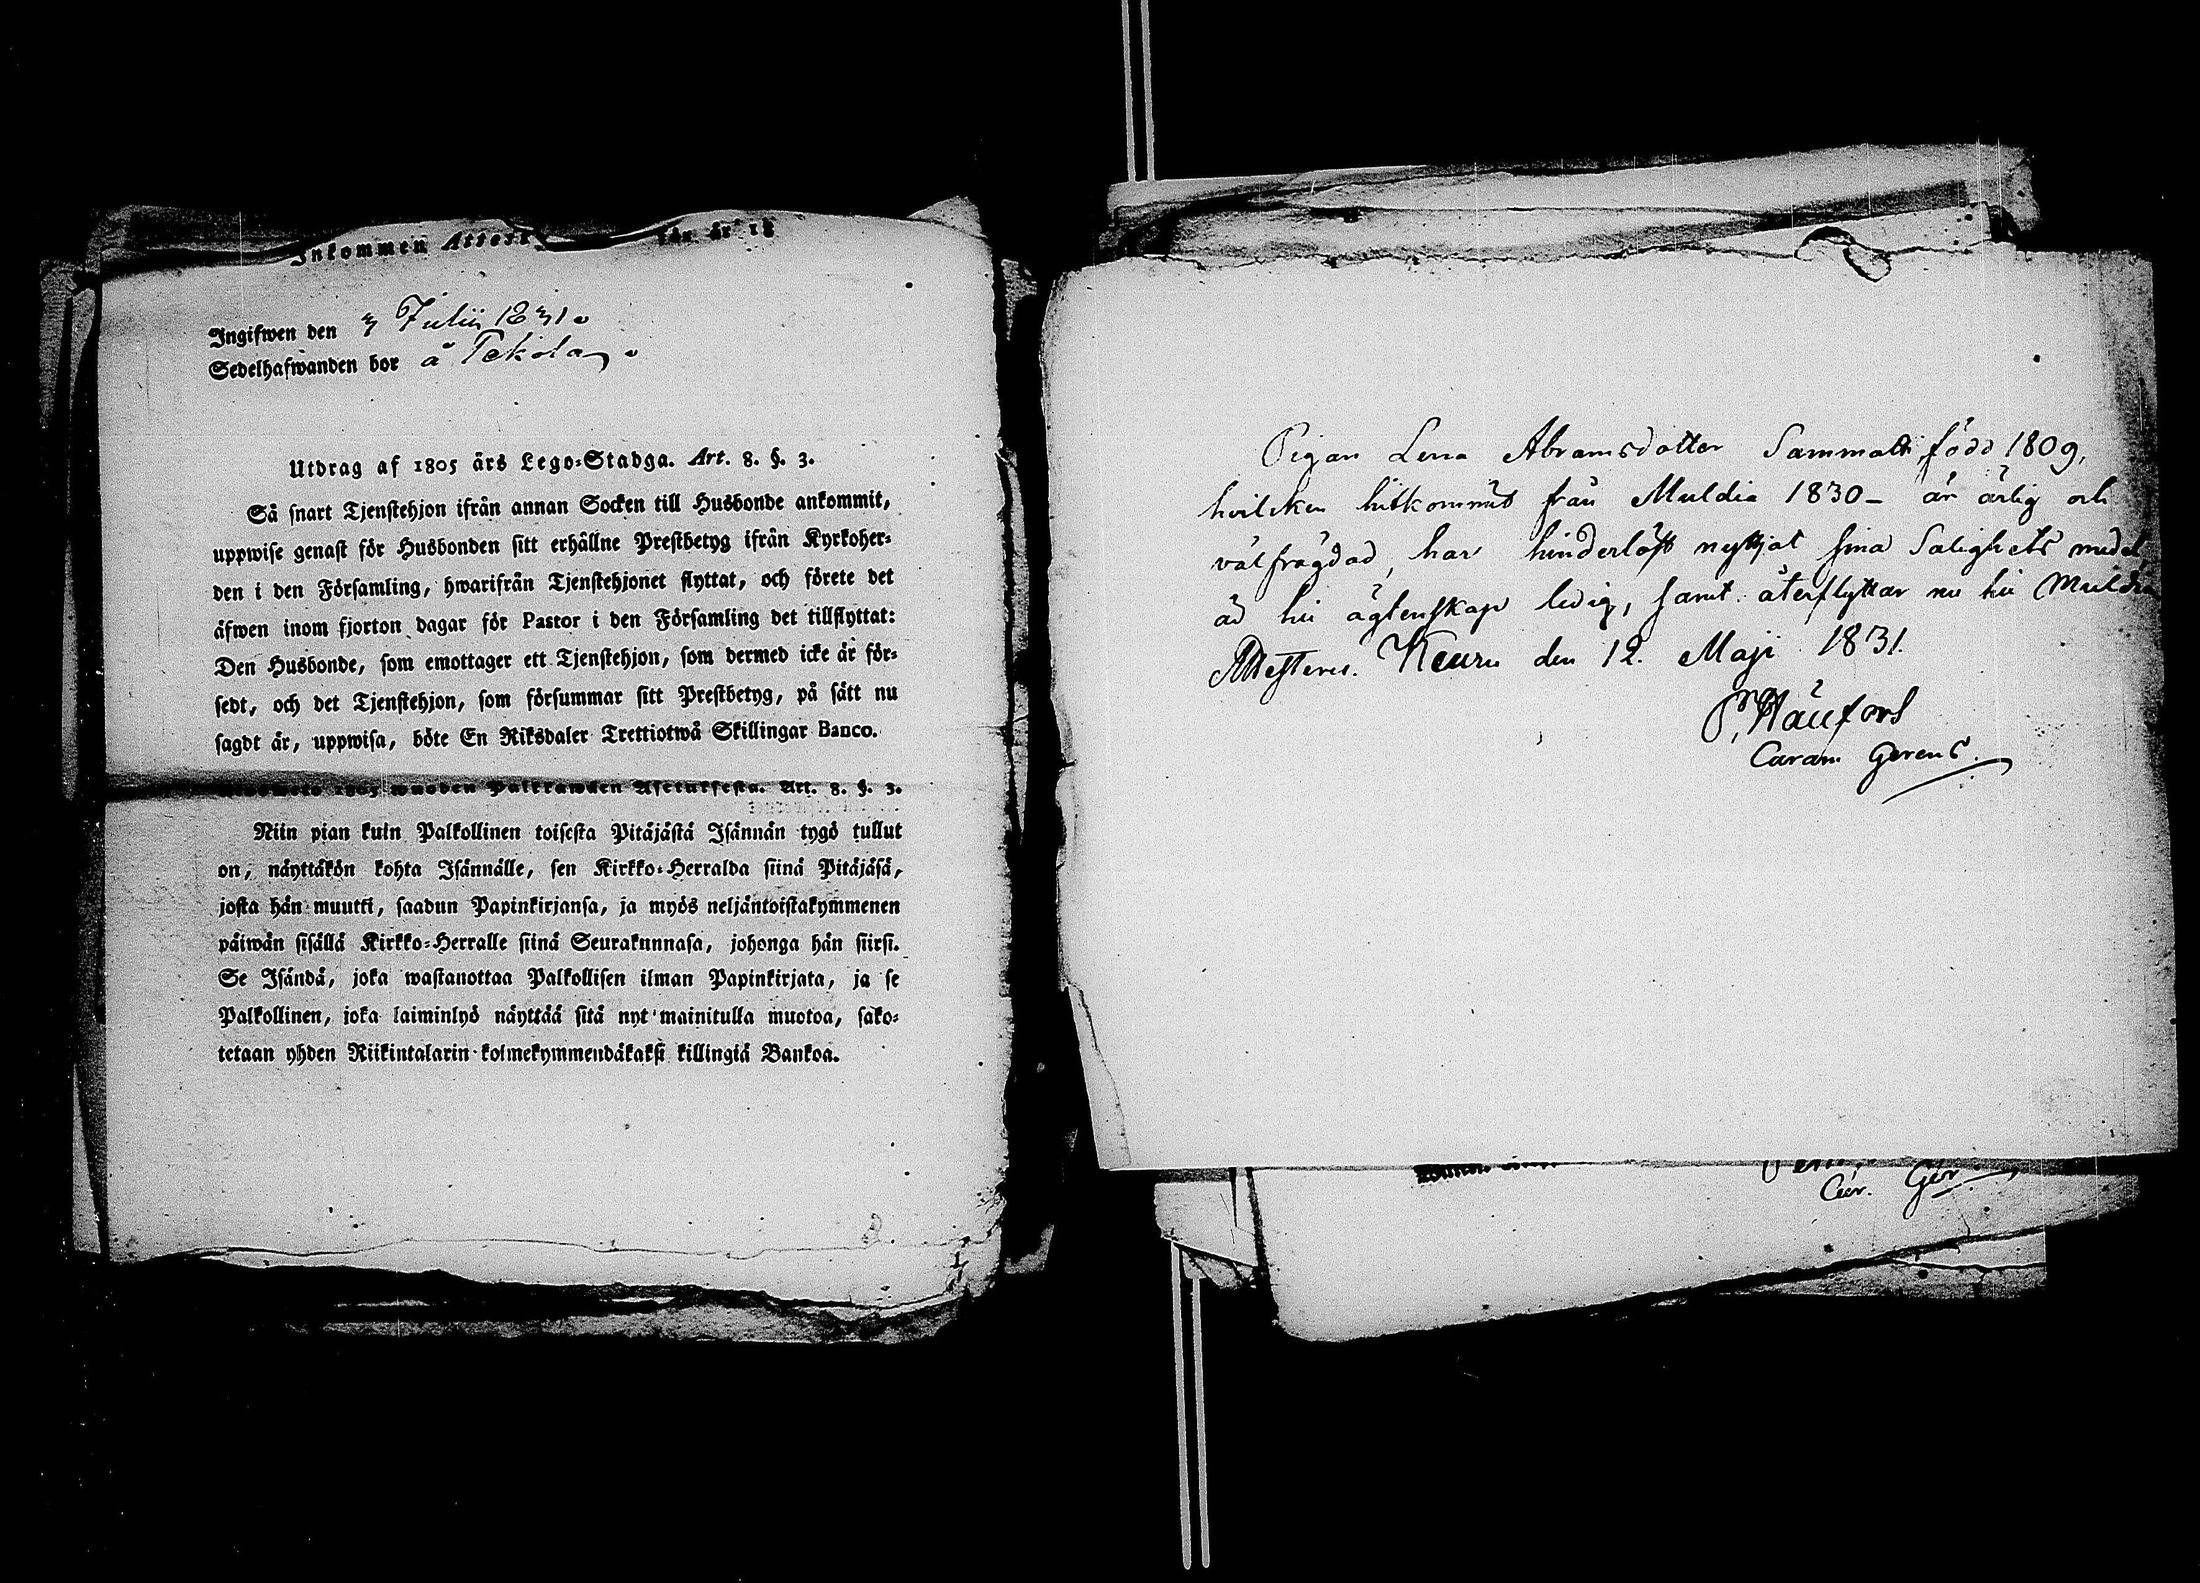 Inkommen Attest för år 18
Ingifwen den 3 Julii 1831.
Sedelhafwanden bor å Tekola.
Utdrag af 1805 års Lego-Stadga. Art. 8. §. 3.
Så snart Tjenstehjon ifrån annan Socken till Husbonde ankommit,
uppwise genast för Husbonden sitt erhållne Prestbetyg ifrån Kyrkoher-
den i den Församling, hwarifrån Tjenstehjonet flyttat, och förete det
äfwen inom fjorton dagar för Pastor i den Församling det tillflyttat:
Den Husbonde, som emottager ett Tjenstehjon, som dermed icke är för-
sedt, och det Tjenstehjon, som försummar sitt Prestbetyg, på sätt nu
sagdt är, uppwisa, böte En Riksdaler Trettiotwå Skillingar Banco.
1805 wuoden Palkkawäen Aseturfesta. Art. 8. §. 3.
Niin pian kuin Palkollinen toisesta Pitäjästä Isännän tygö tullut
on, näyttäkön kohta Isännälle, sen Kirkko-Herralda siinä Pitäjäsä,
josta hän muutti, saadun Papinkirjansa, ja myös neljäntoistakymmenen
päiwän sisällä Kirkko-Herralle siinä Seurakunnasa, johonga hän siirsi.
Se Isändä, joka wastanottaa Palkollisen ilman Papinkirjata, ja se
Palkollinen, joka laiminlyö näyttää sitä nyt mainitulla muotoa, sako-
tetaan yhden Riikintalarin kolmekymmendäkaksi killingiä Bankoa.
Pigan Lena Abramsdotter Sammatti, född 1809,
hvilcken hitkommit från Muldia 1830 - är ärlig och
välfrägdad, har hinderlöst nyttjat sina Salighets medel,
är till ägtenskap ledig, samt återflyttar nu till Muldia
Attesteres. Keuru den 12. Maji 1831.
Caram Gerens.
Cur. Ger